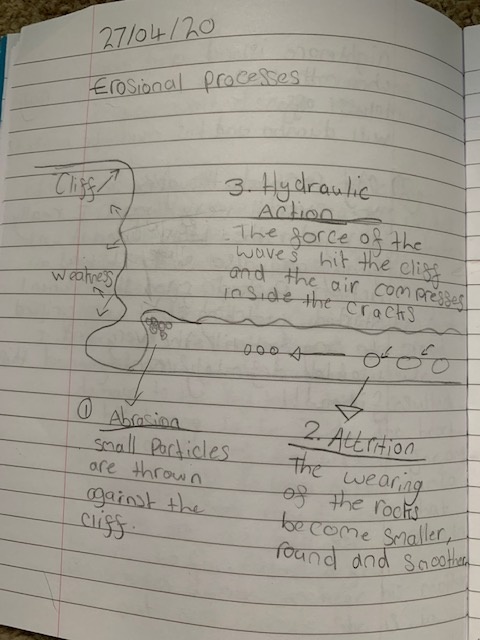 27/04/20
Erosional processes
Cliff
3. Hydraulic
Action
The force of the
waves hit the cliff
and the air compresses
inside the cracks
weakness
① Abrasion
small particles
are thrown
against the
cliff.
2. Attrition
The wearing
of the rocks
become smaller,
round and smoother